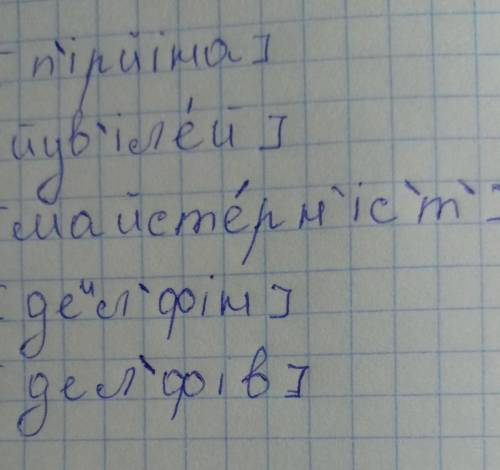 [п`ірйіна]
йув`іле́й]
[майсте́рн`іс`т`]
[деᶦл`фін]
[дел`фів]